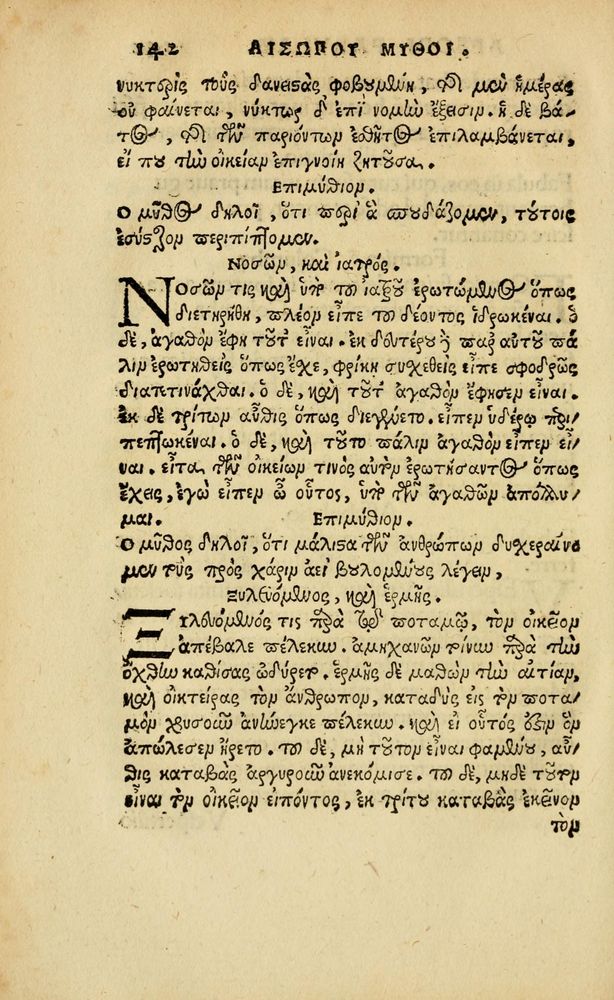 142 ΑΙΣΩΠΟΥ ΜΥΘΟΙ.
νυκτερὶς τοὺς δανειςὰς φοβουμένη, τὸ μὲν ἡμέρας
οὐ φαίνεται, νύκτωρ δ' ἐπὶ νομὴν ἔξεισιν. ἡ δὲ βά-
τος, τῶν παριόντων ἐσθῆτος ἐπιλαμβάνεται,
εἴ που τὴν οἰκείαν ἐπιγνοίη ζητοῦσα.
Επιμύθιον.
Ο μῦθος δηλοῖ, ὅτι περὶ ἃ σπουδάζομεν, τούτοις
ἐσύςερον περιπίπτομεν.
Νοσῶν, καὶ ἰατρός.
ΝΟσῶν τις καὶ ὑπὸ τοῦ ἰατροῦ ἐρωτώμενος ὅπως
διετηρήθη, πλέον εἶπε τοῦ δέοντος ἱδρωκέναι. ὁ
δὲ, ἀγαθὸν ἔφη τοῦτ' εἶναι. ἐκ δευτέρου δὲ παρ' αὐτοῦ πά-
λιν ἐρωτηθεὶς ὅπως ἔχε, φρίκῃ συχεθεὶς εἶπε σφοδρῶς
διατετινάχθαι. ὁ δὲ, καὶ τοῦτ' ἀγαθὸν ἔφησεν εἶναι.
ἐκ δὲ τρίτον αὖθις ὅπως διεγένετο. εἶπεν ὑδέρῳ περι-
πεπτωκέναι. ὁ δὲ, καὶ τοῦτο πάλιν ἀγαθὸν εἶπεν εἶ-
ναι. εἶτα τῶν οἰκείων τινὸς αὐτὸν ἐρωτήσαντος ὅπως
ἔχεις, ἐγὼ εἶπεν ὦ οὗτος, ὑπὸ τῶν ἀγαθῶν ἀπόλλυ-
μαι. Επιμύθιον.
Ο μῦθος δηλοῖ, ὅτι μάλιςα τῶν ἀνθρώπων δυχεραίνο
μεν τοὺς πρὸς χάριν ἀεὶ βουλομένους λέγειν,
Ξυλευόμενος, καὶ ἑρμῆς.
ΞΥλευόμενός τις παρὰ ποταμῷ, τὸν οἰκεῖον
ἀπέβαλε πέλεκυν. ἀμηχανῶν τοίνυν παρὰ τὴν
ὄχθην καθίσας ὠδύρετο. ἑρμῆς δὲ μαθὼν τὴν αἰτίαν,
καὶ οἰκτείρας τὸν ἄνθρωπον, καταδὺς εἰς τὸν ποτα-
μὸν χρυσοῦν ἀνήνεγκε πέλεκυν. καὶ εἰ οὗτός ἐςιν ὃν
ἀπώλεσεν ἤρετο. τοῦ δὲ, μὴ τοῦτον εἶναι φαμένου, αὖ-
θις καταβὰς ἀργυροῦν ἀνεκόμισε. τοῦ δὲ, μηδὲ τοῦτον
εἶναι τὸν οἰκεῖον εἰπόντος, ἐκ τρίτου καταβὰς ἐκεῖνον
τὸν